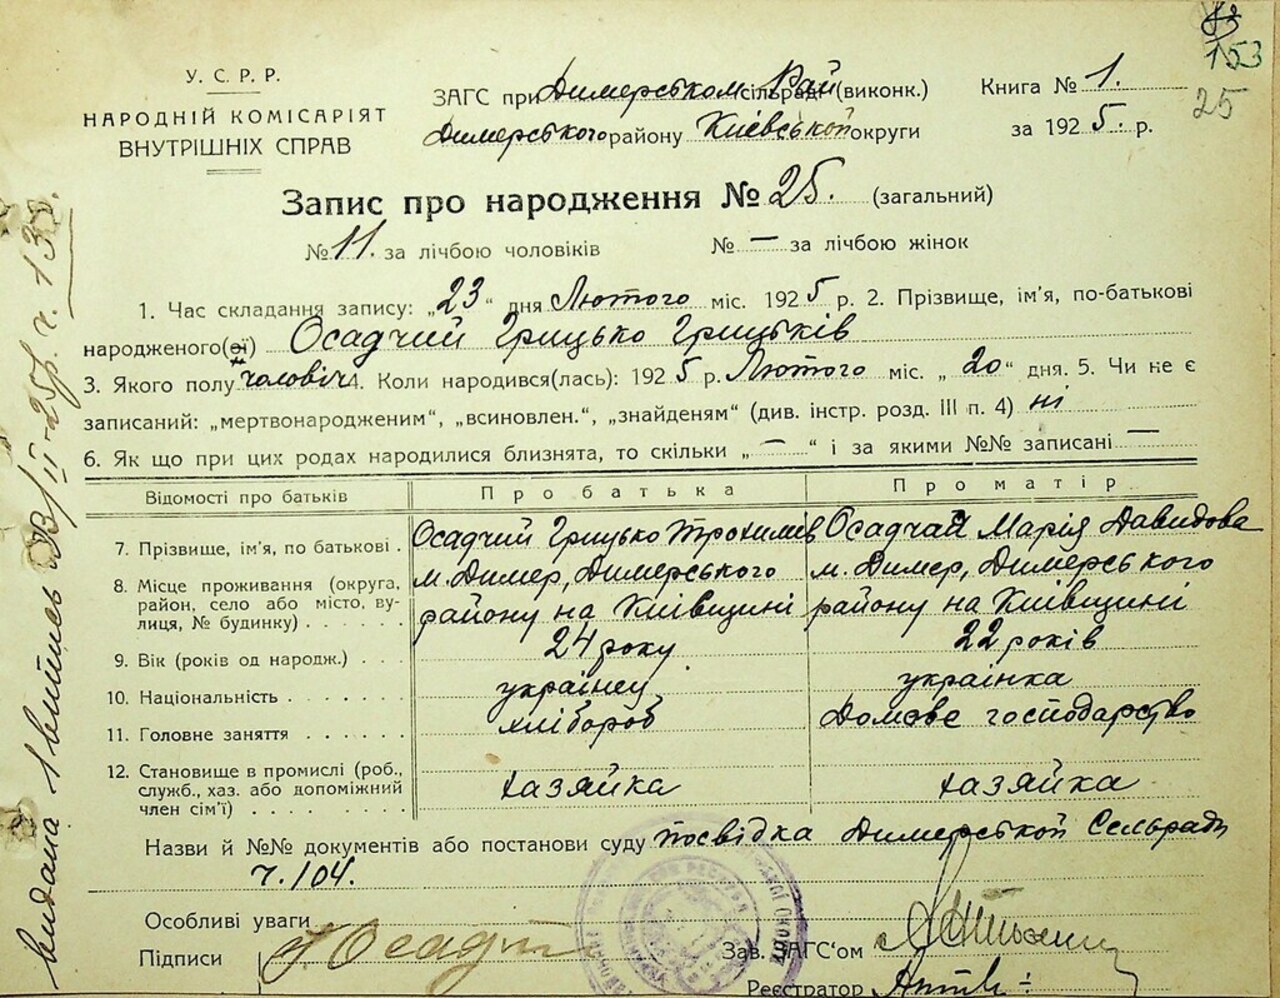 153
25
У. С. Р. Р.
НАРОДНІЙ КОМІСАРІЯТ
ВНУТРІШНІХ СПРАВ
ЗАГС при Димерськом Рай сільраді (виконк.)
Димерського району Київської округи
Книга № 1.
за 1925. р.
Запис про народження № 25. (загальний)
№ 11. за лічбою чоловіків № — за лічбою жінок
1. Час складання запису: „23“ дня Лютого міс. 1925 р. 2. Прізвище, ім’я, по-батькові
народженого(ої) Осадчий Грицько Грицьків
3. Якого полу чоловіч 4. Коли народився(лась): 1925 р. Лютого міс. „20“ дня. 5. Чи не є
записаний: „мертвонародженим“, „всиновлен.“, „знайденям“ (див. інстр. розд. III п. 4) ні
6. Як що при цих родах народилися близнята, то скільки „—“ і за якими №№ записані —
Відомості про батьків Про батька Про матір
7. Прізвище, ім’я, по батькові . Осадчий Грицько Трохимів Осадчая Марія Давидова
8. Місце проживання (округа, м. Димер, Димерського м. Димер, Димерського
район, село або місто, ву- району на Київщині району на Київщині
лиця, № будинку) . . . . . .
9. Вік (років од народж.) . . . 24 року 22 років
10. Національність . . . . . . українец українка
11. Головне заняття . . . . . . хлібороб Домове господарство
12. Становище в промислі (роб.,
служб., хаз. або допоміжний хазяйка хазяйка
член сім’ї) . . . . . . . . .
Назви й №№ документів або постанови суду посвідка Димерської Сельради
ч. 104.
Особливі уваги
Підписи Осадч
Зав. ЗАГС‘ом
Реєстратор
видана 1 витись